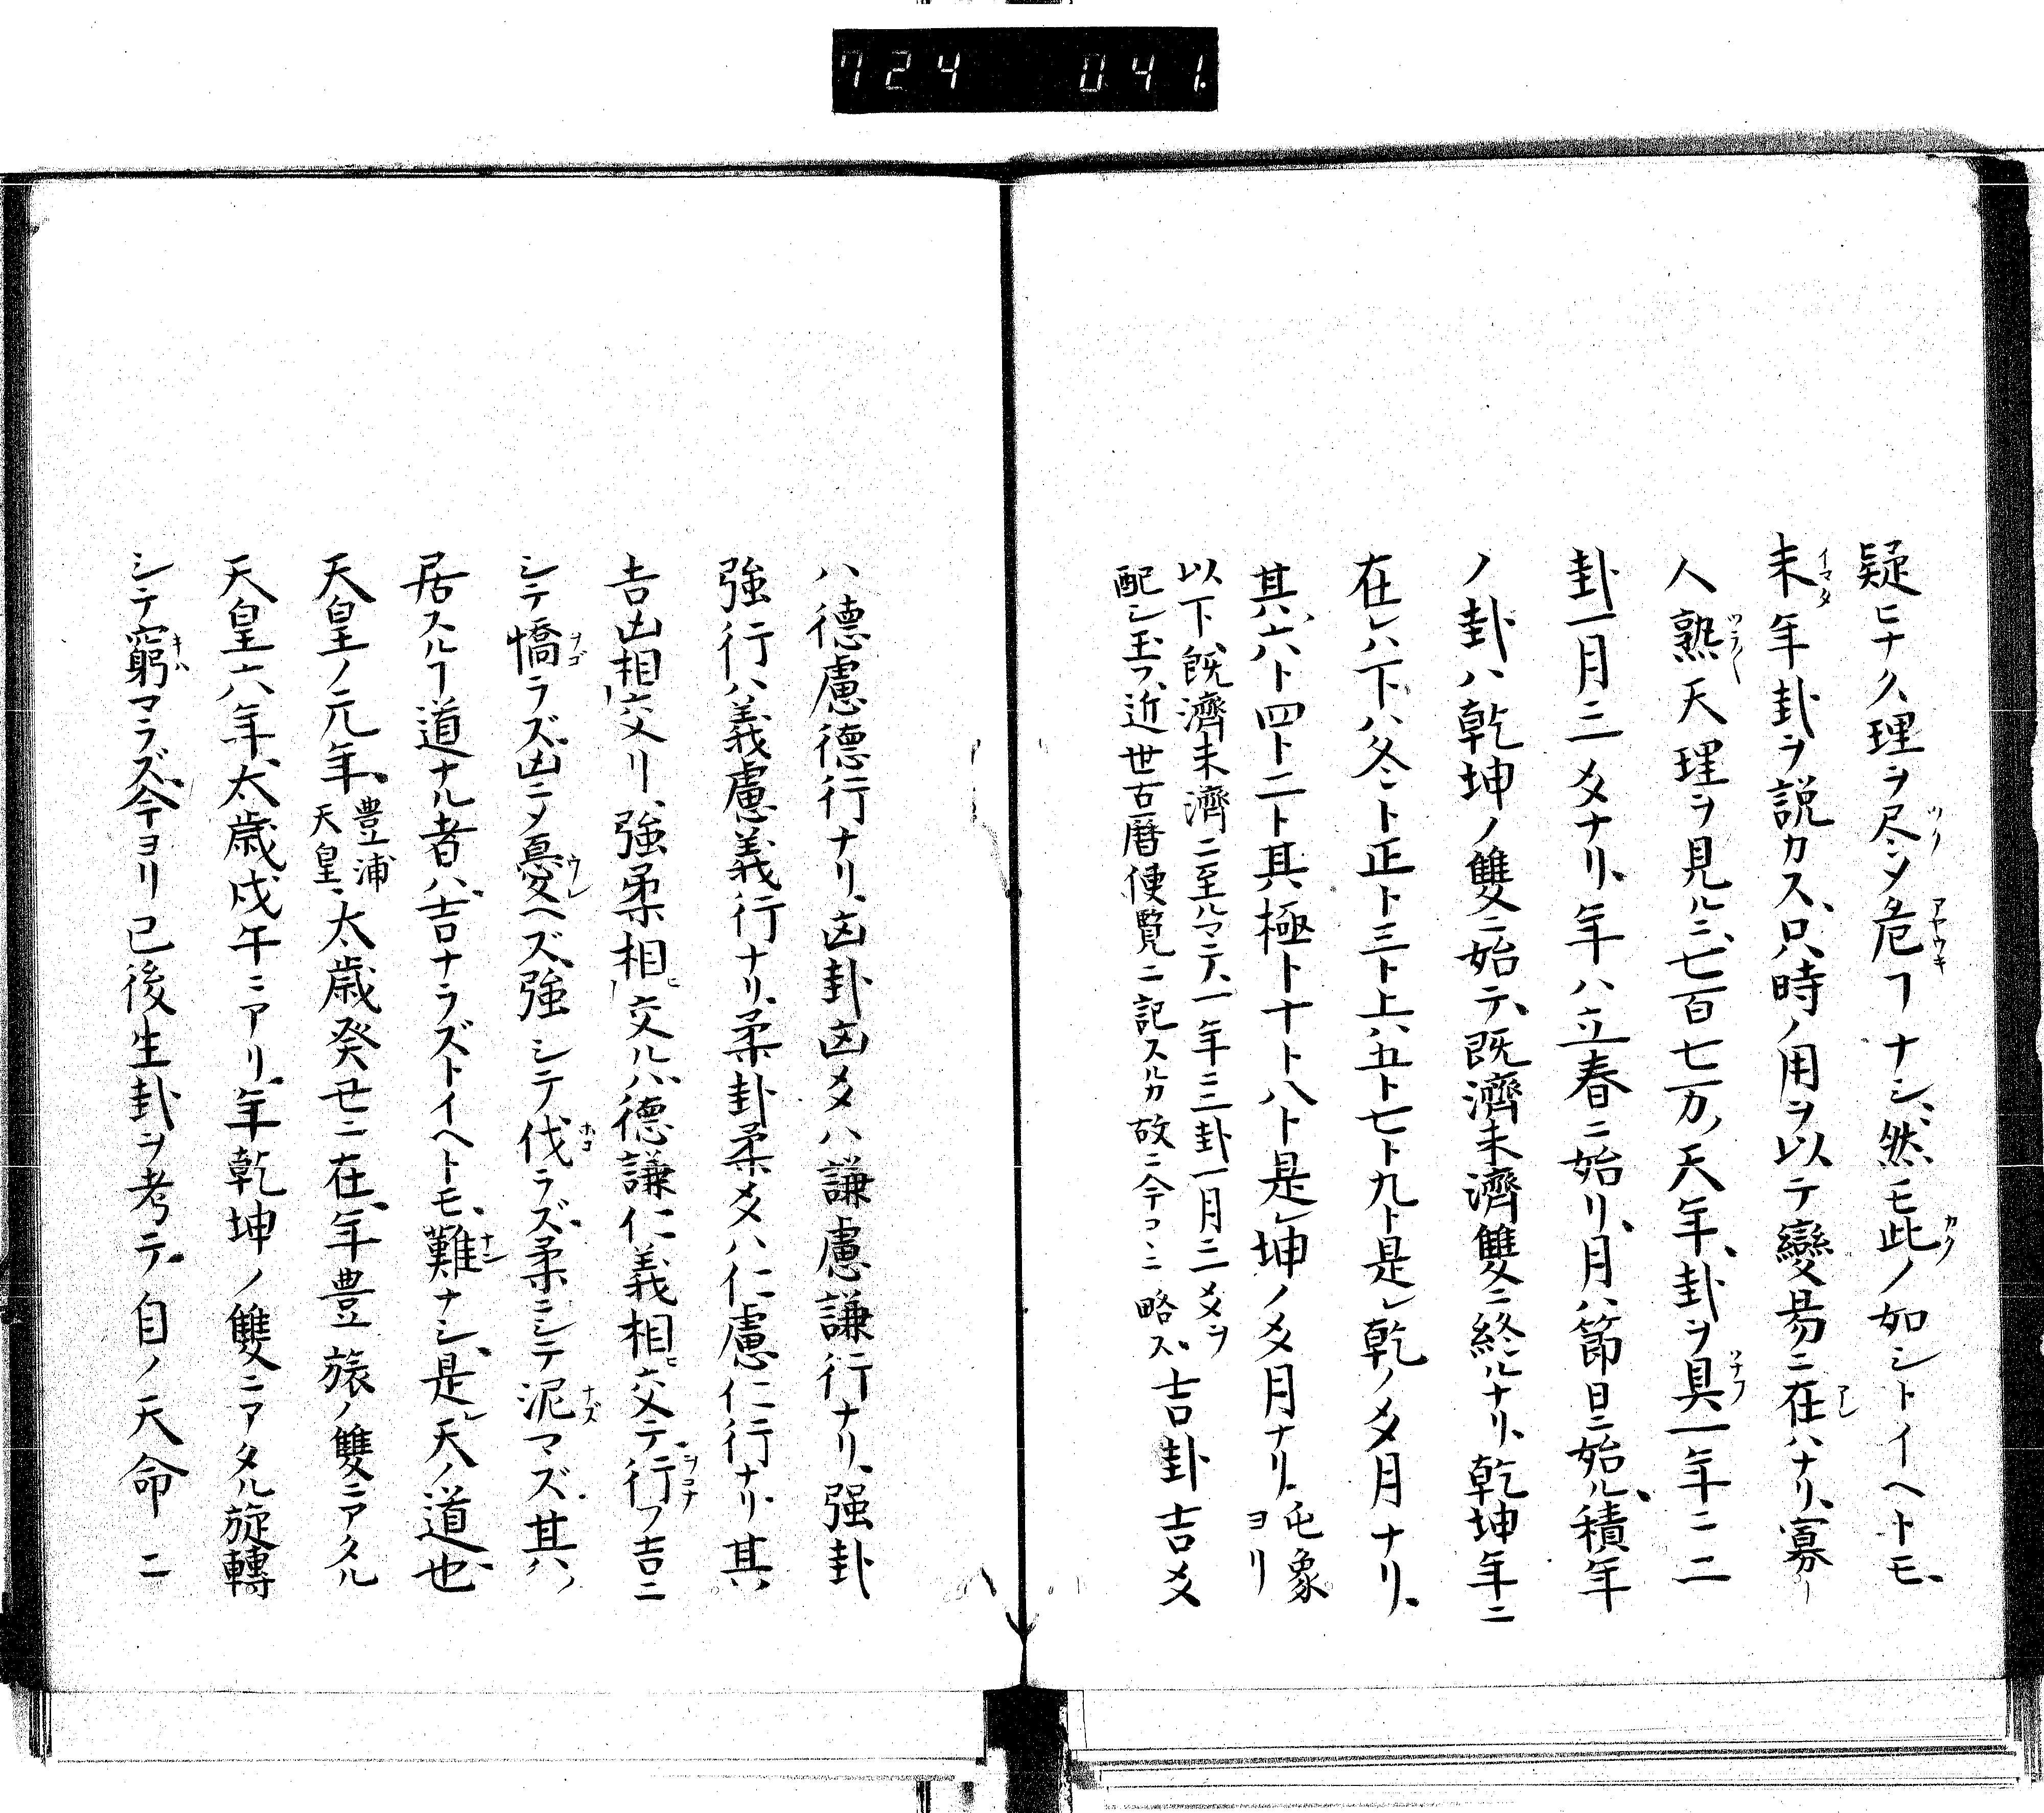 724 041.
疑ヒナク理ヲ尽シタ危フナシ、然モ此ノ如シトイヘトモ、
未年卦ヲ説カス、只時ノ用ヲ以テ變易ニ在ハナリ、寡
人熟天理ヲ見ルニ、七百七万ノ天年、卦ヲ具一年ニ二
卦一月ニ二爻ナリ、年ハ立春ニ始リ、月ハ節日ニ始ル、積年
ノ卦ハ乾坤ノ雙ニ始テ、既濟未濟雙ニ終ルナリ、乾坤年ニ
在レハ下ハ冬ト正ト三ト上ハ五ト七ト九ト是レ乾ノ爻月ナリ、
其ハ六ト四ト二ト其極ト十ト八ト是レ坤ノ爻月ナリ、屯象ヨリ
以下、既濟未濟ニ至ルマテ、一年三卦一月二爻ヲ
配シ玉フ、近世古暦便覧ニ記スルカ故ニ今コヽニ略ス、吉卦吉爻
ハ德慮德行ナリ、凶卦凶爻ハ謙慮謙行ナリ、强卦
強行ハ義慮義行ナリ、柔卦柔爻ハ仁慮仁行ナリ、其
吉凶相交リ、強柔相交ルハ、德謙仁義相交テ、行フ吉ニ
シテ憍ラズ、凶ニメ憂ヘズ、強シテ伐ラズ、柔ニシテ泥マズ、其ノ
居スルフ道ナル者ハ、吉ナラズトイヘトモ、難ナシ、是レ天ノ道也、
天皇ノ元年、豊浦天皇、太歳癸丑ニ在、年豊旅ノ雙ニアタル
天皇六年、太歳戊午ニアリ、年乾坤ノ雙ニアタル旋轉
シテ窮マラズ、今ヨリ已後生卦ヲ考テ、自ノ天命ニ